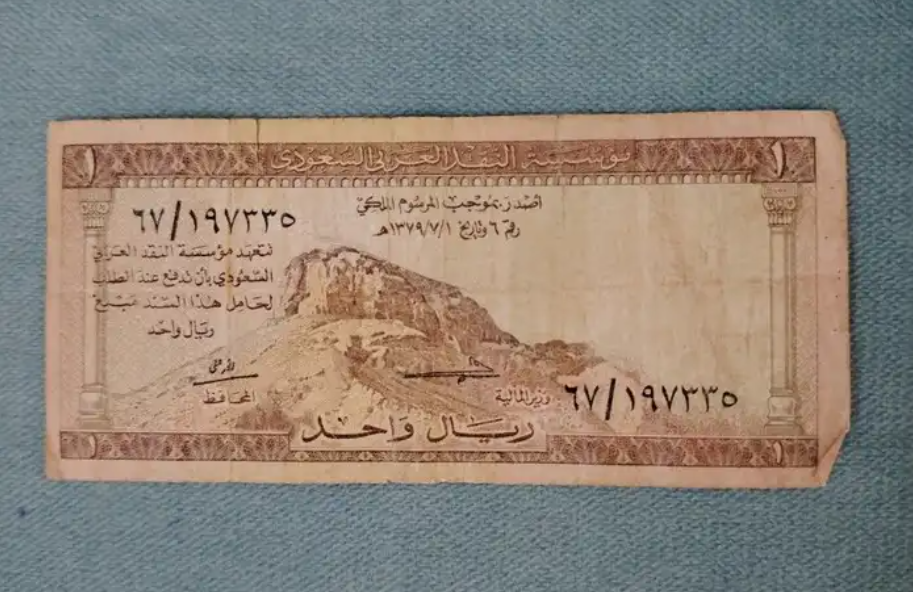 ١ مؤسسة النقد العربي السعودي ١
أصدر بموجب المرسوم الملكي
رقم ٦ وتاريخ ١٣٧٩/٧/١ هـ
٦٧/١٩٧٣٣٥
تتعهد مؤسسة النقد العربي
السعودي بأن تدفع عند الطلب
لحامل هذا السند مبلغ
ريال واحد
المحافظ
وزير المالية
٦٧/١٩٧٣٣٥
١ ريال واحد ١